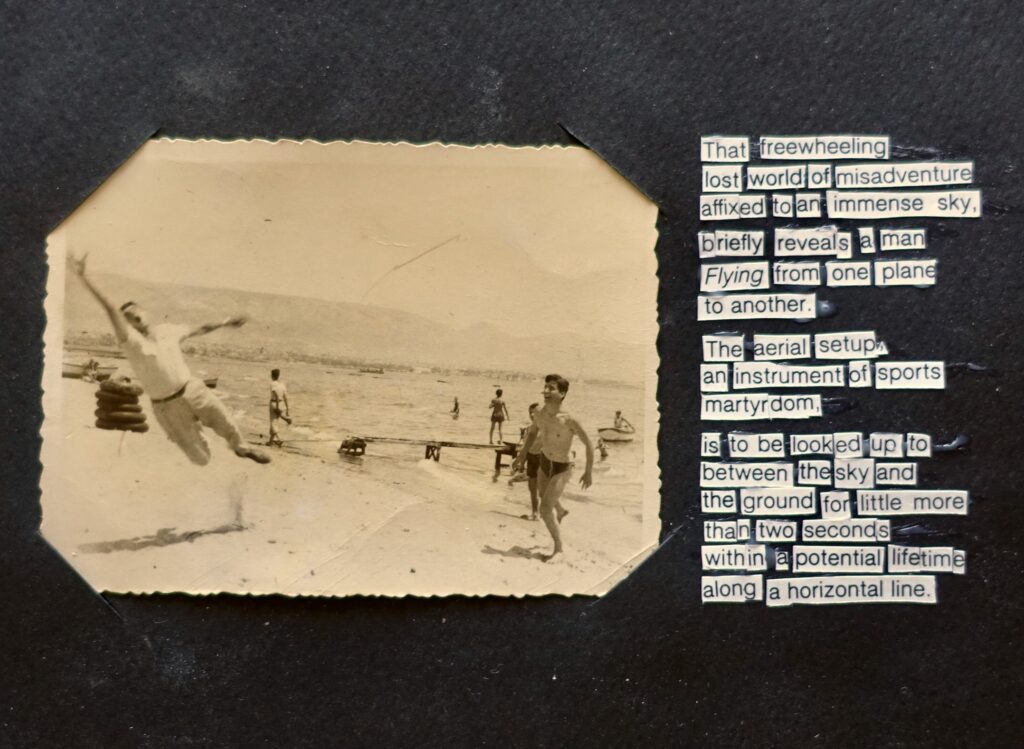 That freewheeling
lost world of misadventure
affixed to an immense sky,
briefly reveals a man
Flying from one plane
to another.
The aerial setup,
an instrument of sports
martyrdom,
is to be looked up to
between the sky and
the ground for little more
than two seconds
within a potential lifetime
along a horizontal line.